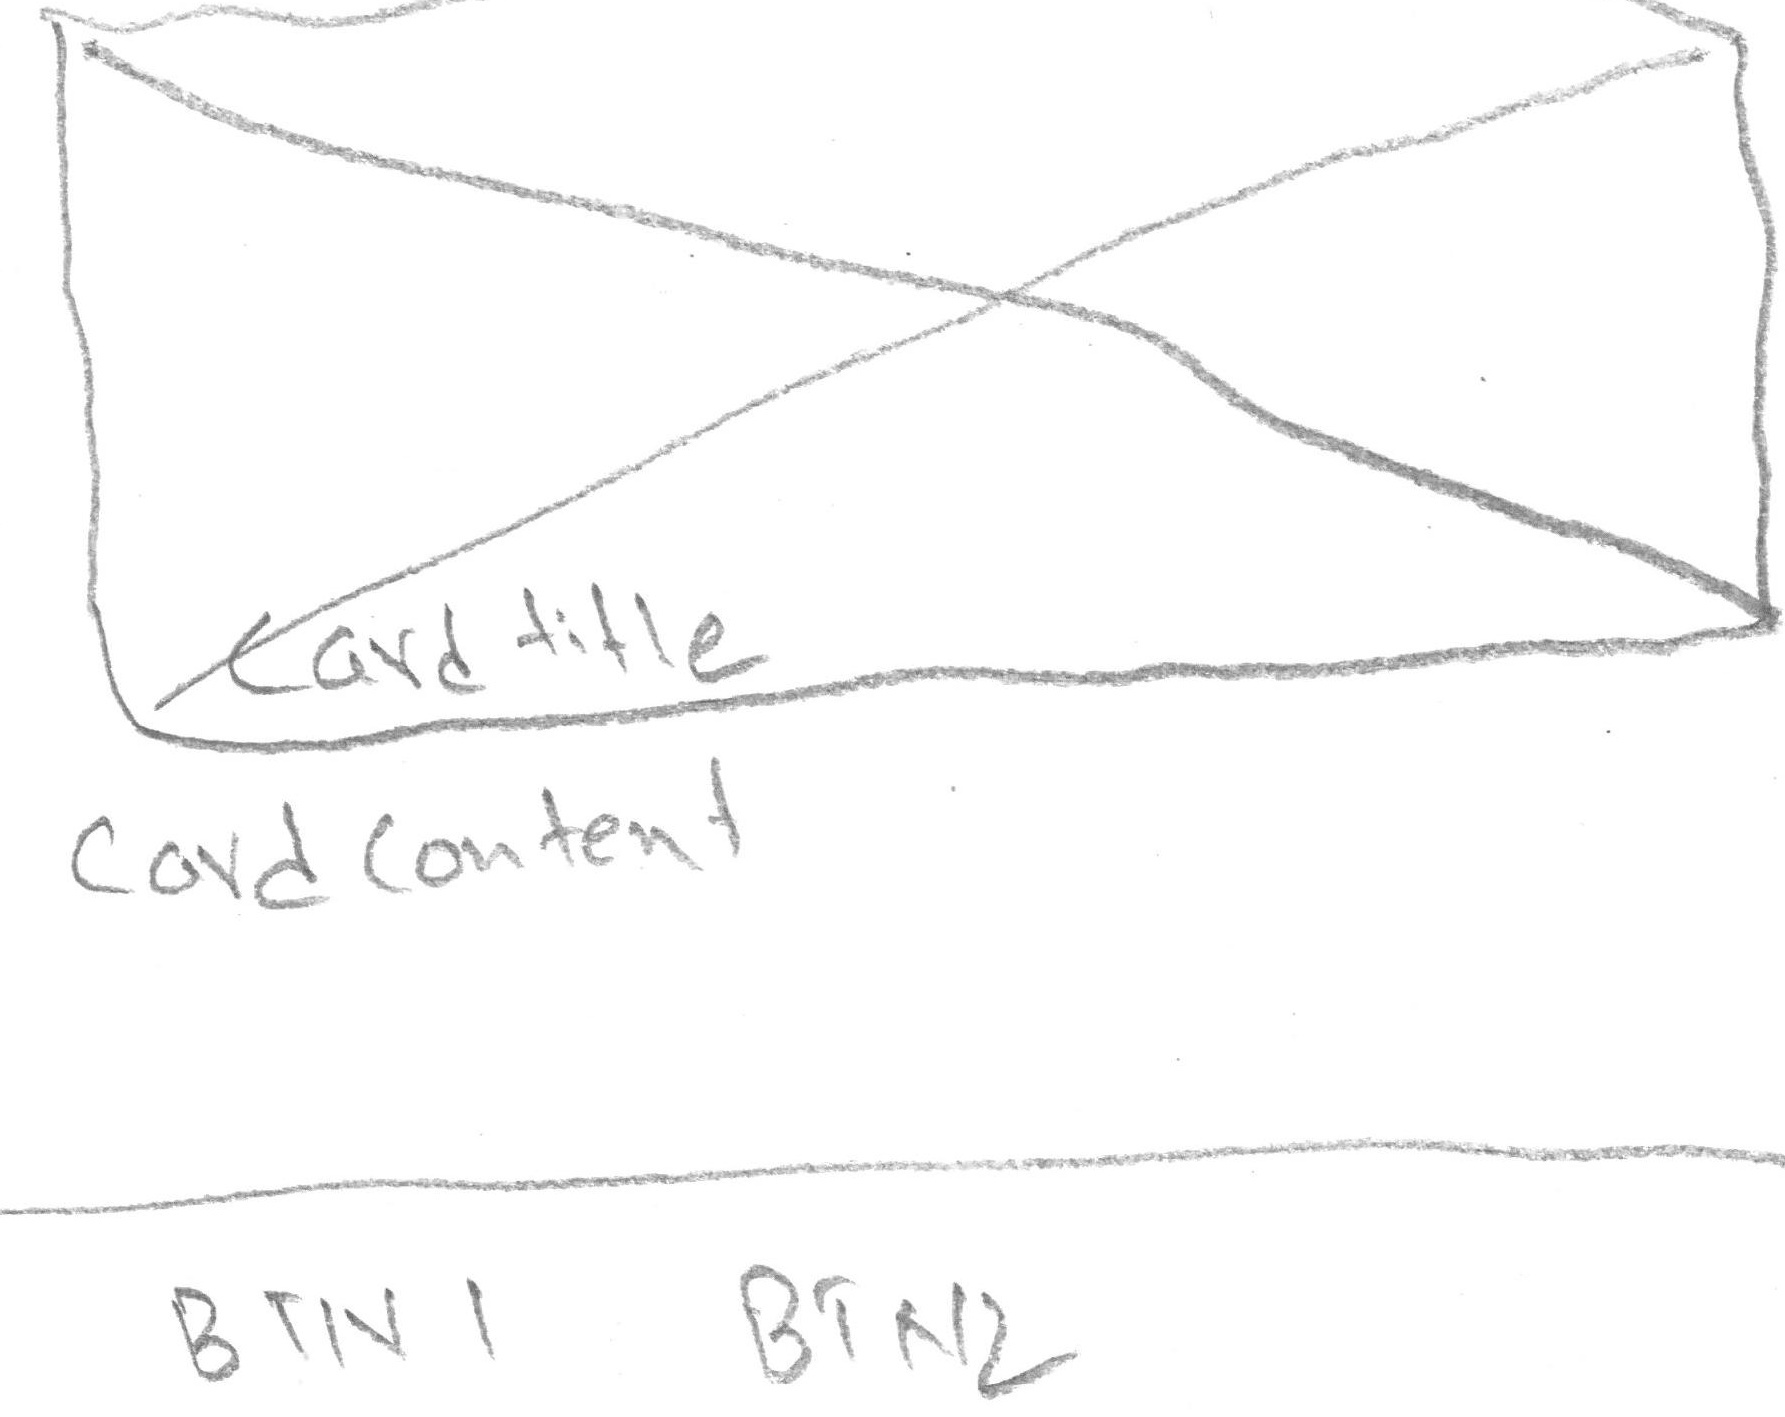 Card title
Card Content
BTN 1 BTN2